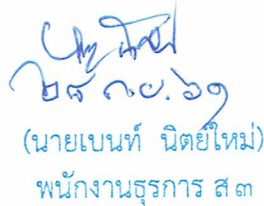 ๒๘ ก.ย. ๖๑
(นายเบนท์ นิตย์ใหม่)
พนักงานธุรการ ส ๓